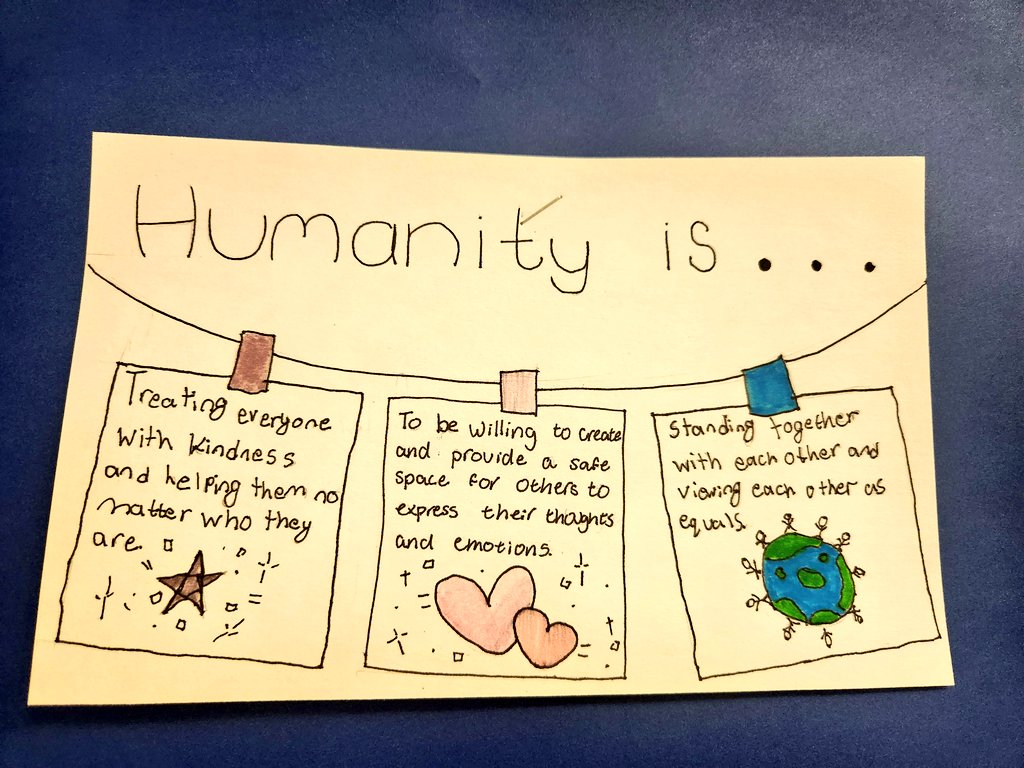 Humanity is...
Treating everyone
with kindness
and helping them no
matter who they
are.
To be willing to create
and provide a safe
space for others to
express their thoughts
and emotions.
Standing together
with each other and
viewing each other as
equals.